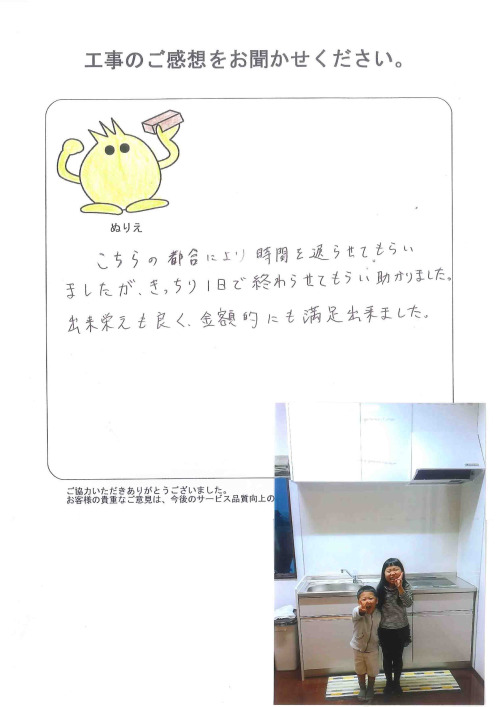 工事のご感想をお聞かせください。
ぬりえ
こちらの都合により時間を遅らせてもらい
ましたが、きっちり1日で終わらせてもらい助かりました。
出来栄えも良く、金額的にも満足出来ました。
ご協力いただきありがとうございました。
お客様の貴重なご意見は、今後のサービス品質向上の